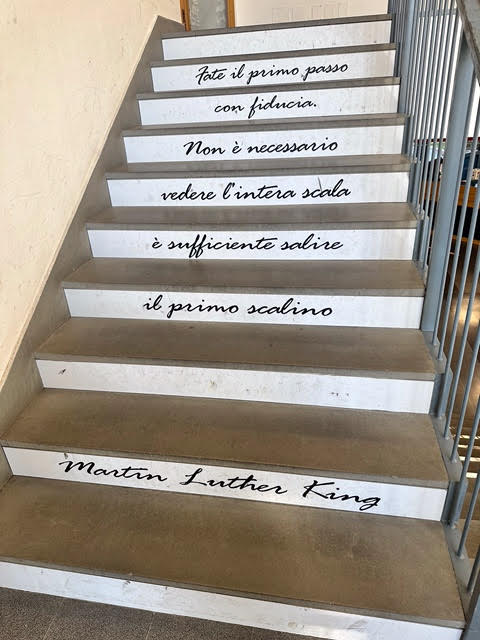 Fate il primo passo
con fiducia.
Non è necessario
vedere l'intera scala
è sufficiente salire
il primo scalino
Martin Luther King